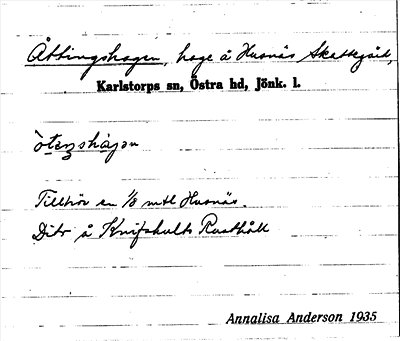 Åttingshagen, hage å Husnäs Skattegård,
Karlstorps sn, Östra hd, Jönk. l.
òteŋshàgən
Tillhör en 1/8 mtl Husnäs.
Dito å Knifshults Rusthåll
Annalisa Anderson 1935